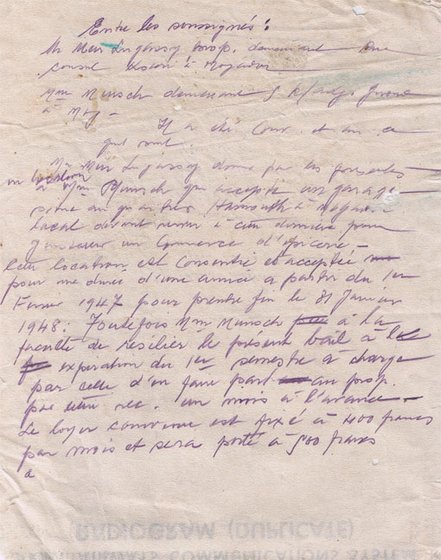 Entre les soussignés :
Mr Meir Lugassy prop. demeurant Rue
Consul à Mogador
Mme Munsch demeurant
à Mog –
Il a été conv. et
qui suit.
Mr Meir Lugassy donne par les présentes
en location
à Mme Munsch qui accepte un garage
situé au quartier à Mogador
Local devant servir à cette dernière pour
y un Commerce d'
Cette location est consentie et acceptée
pour une durée d'une année a partir du 1er
Fevrier 1947 pour prendre fin le 31 Janvier
1948. Toutefois Mme Munsch à la
faculté de resilier le présent bail à l'
expiration du 1er semestre à charge
par elle d'en faire part au prop.
par lettre rec. un mois à l'avance –
Le loyer convenu est fixé à 400 francs
par mois et sera porté à 500 francs
a
RADIOGRAM (DUPLICATE)
COMMUNICATIONS SYSTEM